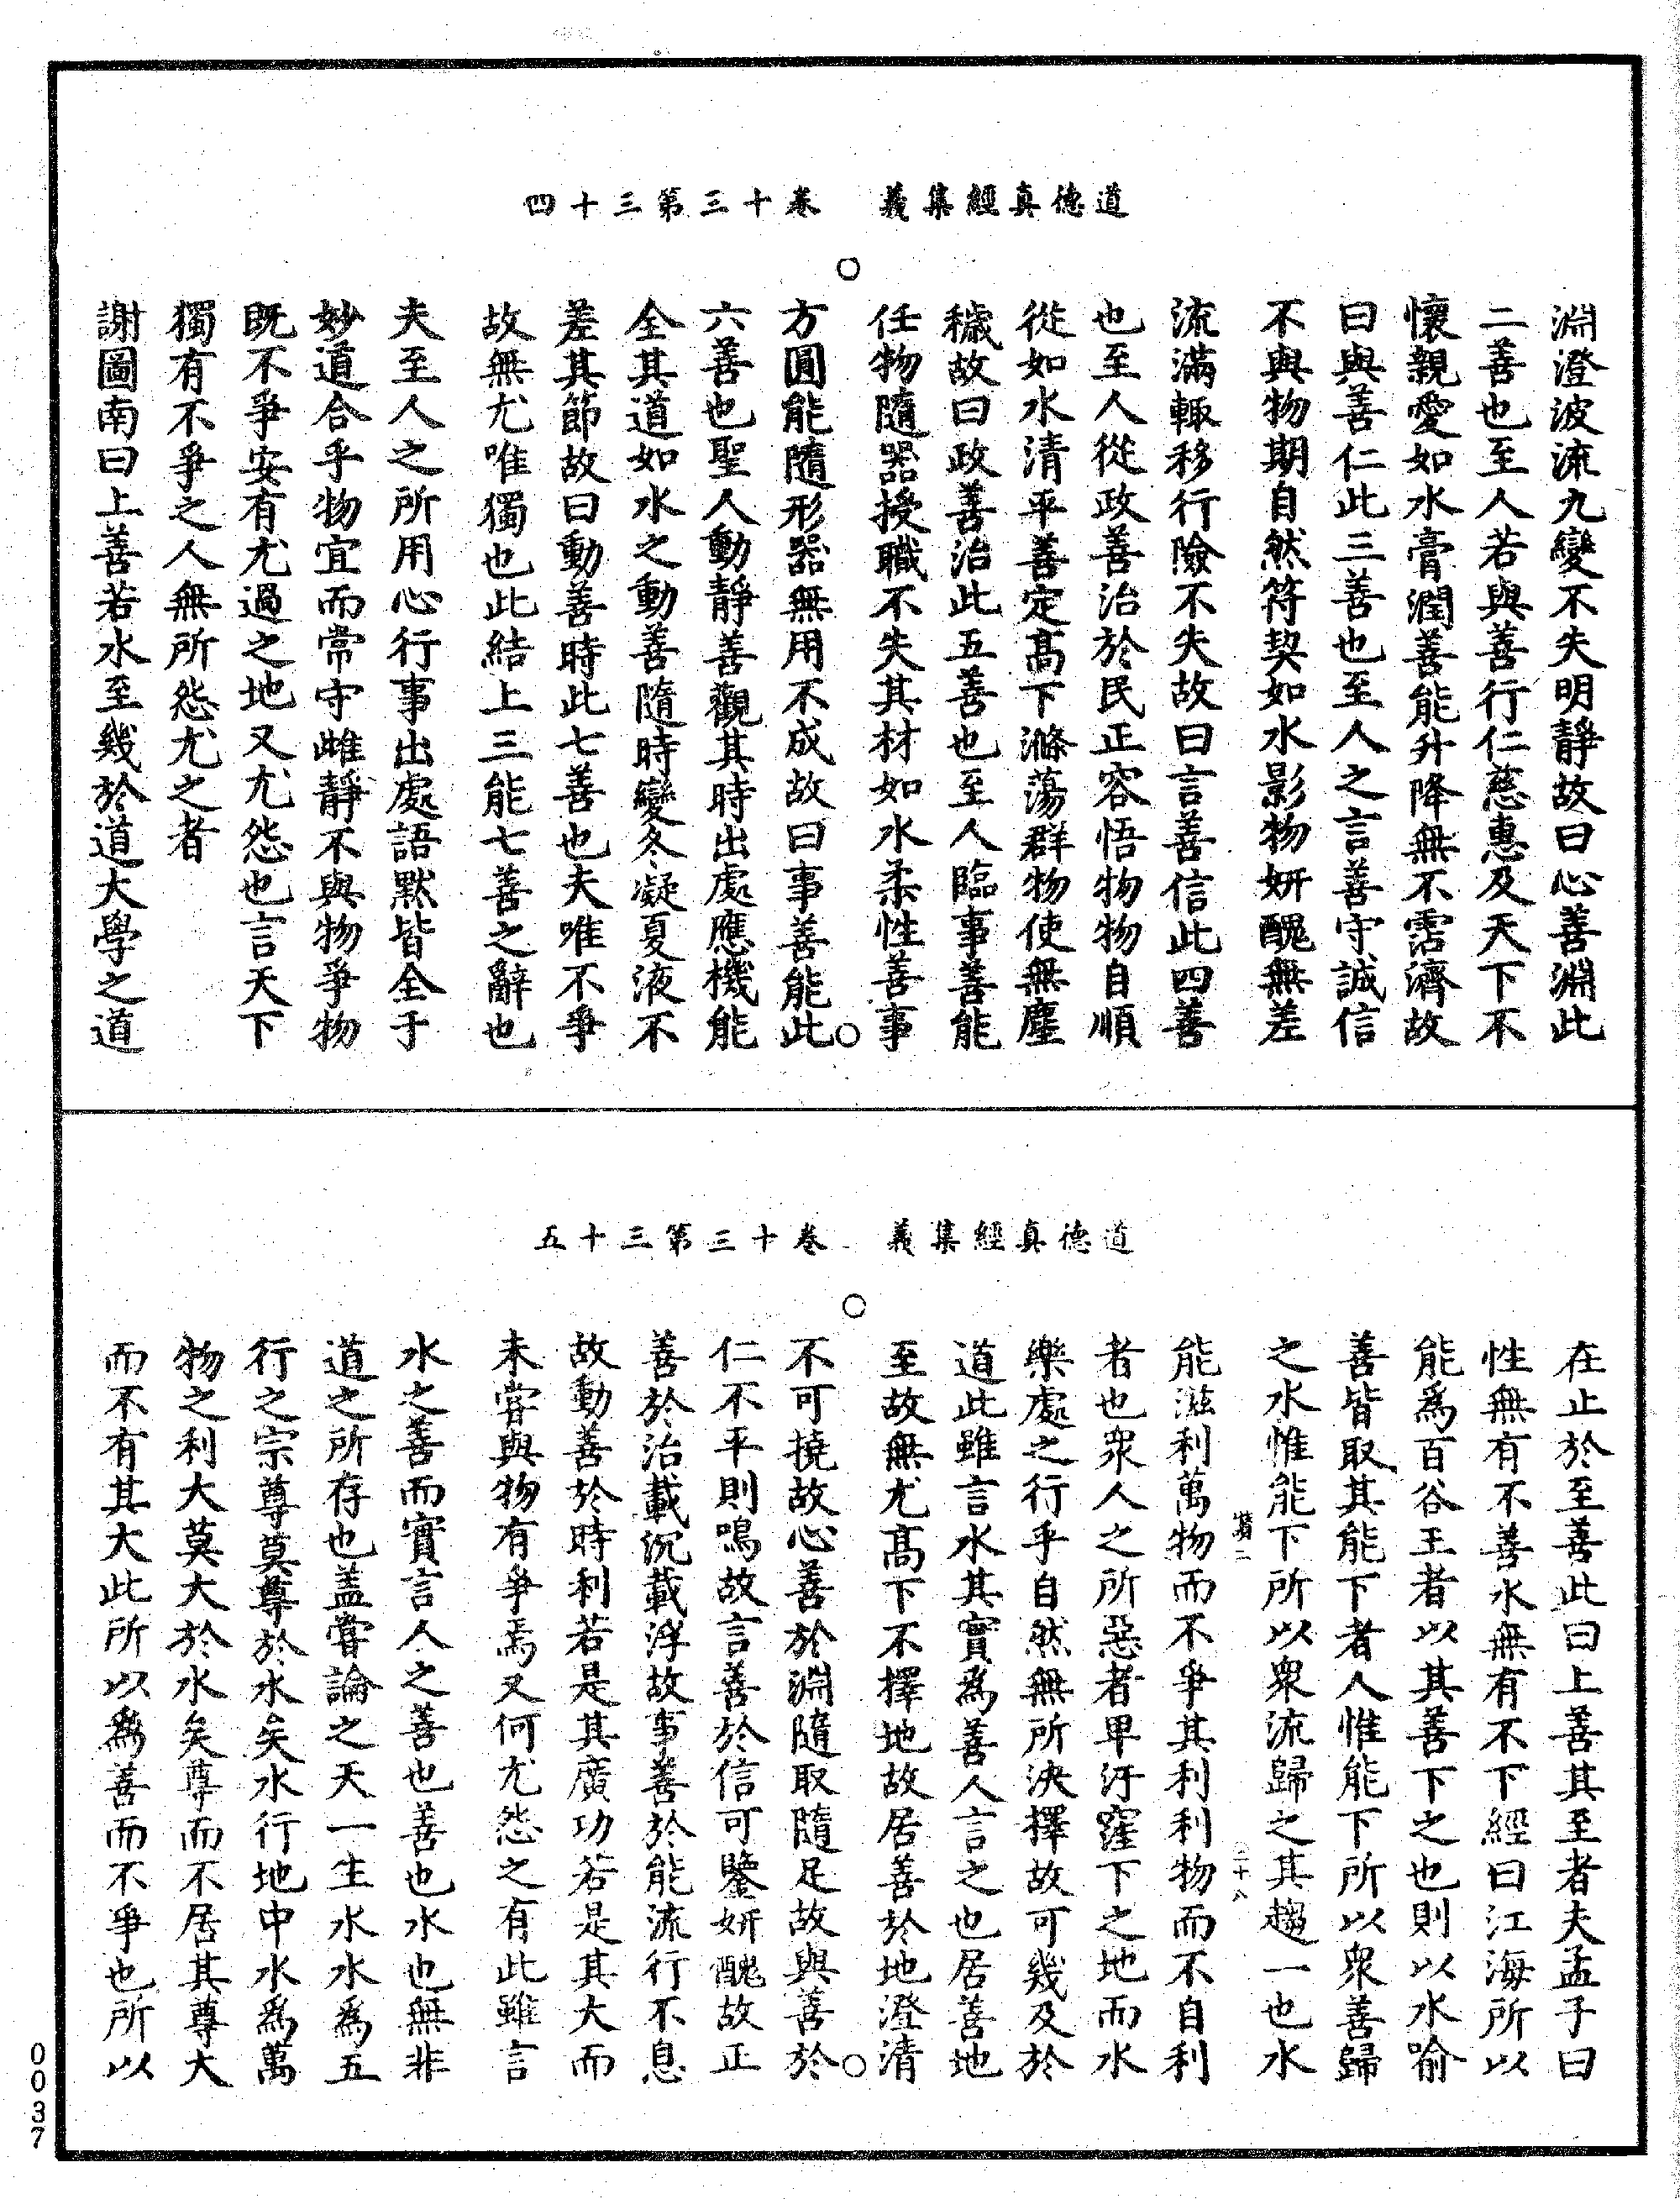 道德真經集義　卷十三第三十四
淵澄波流九變不失明靜故曰心善淵此
二善也至人若與善行仁慈惠及天下不
懷親愛如水膏潤善能升降無不霑濟故
曰與善仁此三善也至人之言善守誠信
不與物期自然符契如水影物妍醜無差
流滿輙移行險不失故曰言善信此四善
也至人從政善治於民正容悟物物自順
從如水清平善定髙下滌蕩群物使無塵
穢故曰政善治此五善也至人臨事善能
任物隨器授職不失其材如水柔性善事
方圓能隨形器無用不成故曰事善能此
六善也聖人動靜善觀其時出處應機能
全其道如水之動善隨時變冬凝夏液不
差其節故曰動善時此七善也夫唯不爭
故無尤唯獨也此結上三能七善之辭也
夫至人之所用心行事出處語默皆全于
妙道合乎物宜而常守雌靜不與物爭物
既不爭安有尤過之地又尤怨也言天下
獨有不爭之人無所怨尤之者
謝圖南曰上善若水至幾於道大學之道
道德真經集義　卷十三第三十五
在止於至善此曰上善其至者夫孟子曰
性無有不善水無有不下經曰江海所以
能爲百谷王者以其善下之也則以水喻
善皆取其能下者人惟能下所以衆善歸
之水惟能下所以衆流歸之其趨一也水
能滋利萬物而不爭其利利物而不自利
者也衆人之所惡者卑汙窪下之地而水
樂處之行乎自然無所決擇故可幾及於
道此雖言水其實爲善人言之也居善地
至故無尤髙下不擇地故居善於地澄清
不可撓故心善於淵隨取隨足故與善於
仁不平則鳴故言善於信可鑒妍醜故正
善於治載沉載浮故事善於能流行不息
故動善於時利若是其廣功若是其大而
未甞與物有爭焉又何尤怨之有此雖言
水之善而實言人之善也善也水也無非
道之所存也盖甞論之天一生水水爲五
行之宗尊莫尊於水矣水行地中水爲萬
物之利大莫大於水矣尊而不居其尊大
而不有其大此所以爲善而不爭也所以
0037